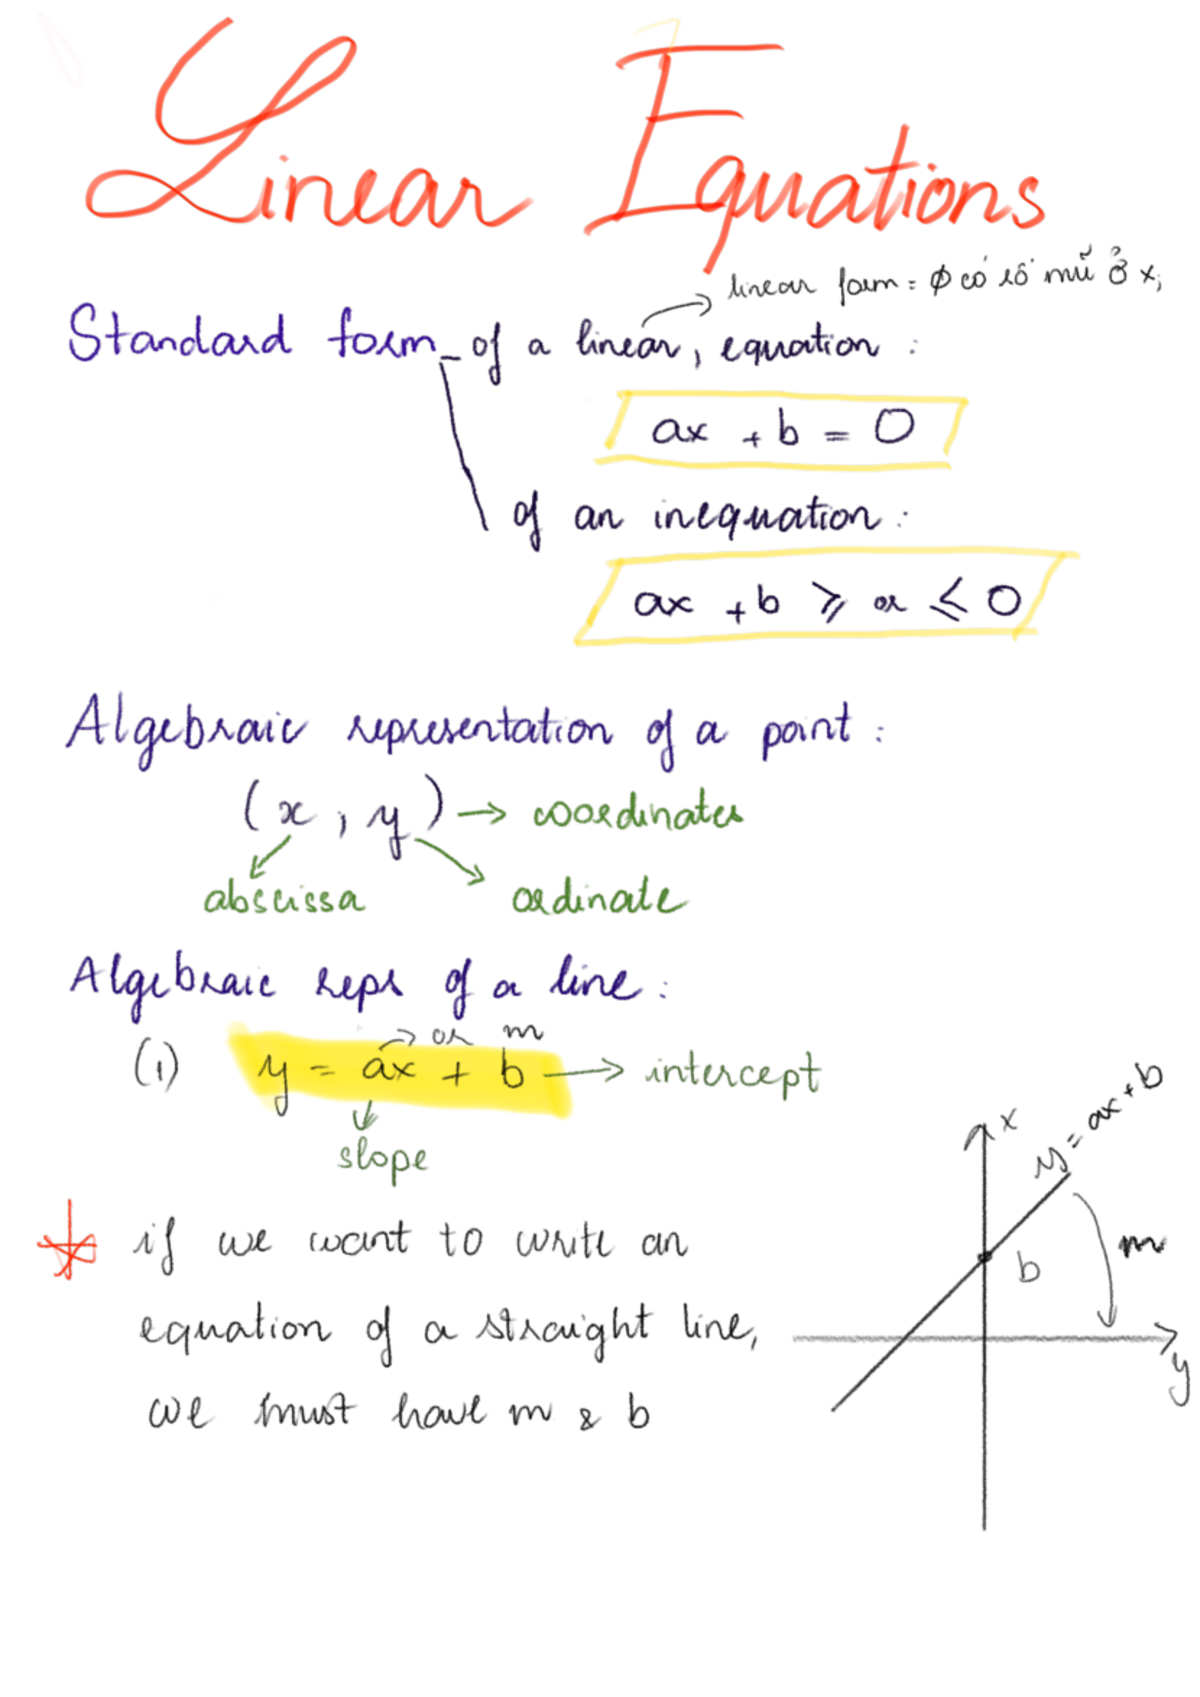 Linear Equations
linear form = ∅ có số mũ ở x,
Standard form of a linear, equation :
ax + b = 0
of an inequation :
ax + b ⩾ or ⩽ 0
Algebraic representation of a point :
(x, y) → coordinates
abscissa ordinate
Algebraic reps of a line :
or m
(1) y = ax + b → intercept
slope
x
y = ax + b
* if we want to write an
m
b
equation of a straight line,
y
we must have m & b